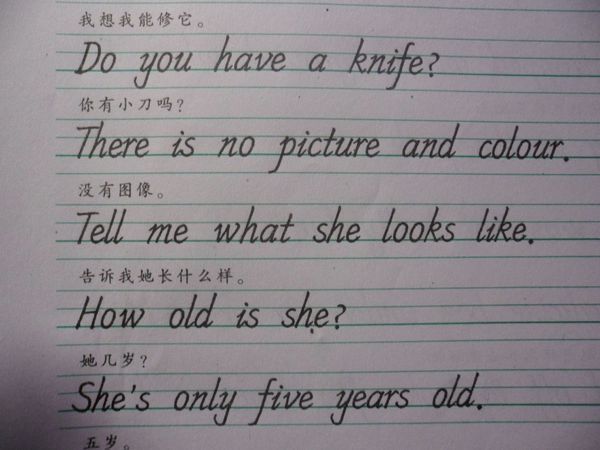 我想我能修它。
Do you have a knife?
你有小刀吗?
There is no picture and colour.
没有图像。
Tell me what she looks like.
告诉我她长什么样。
How old is she?
她几岁?
She's only five years old.
五岁。